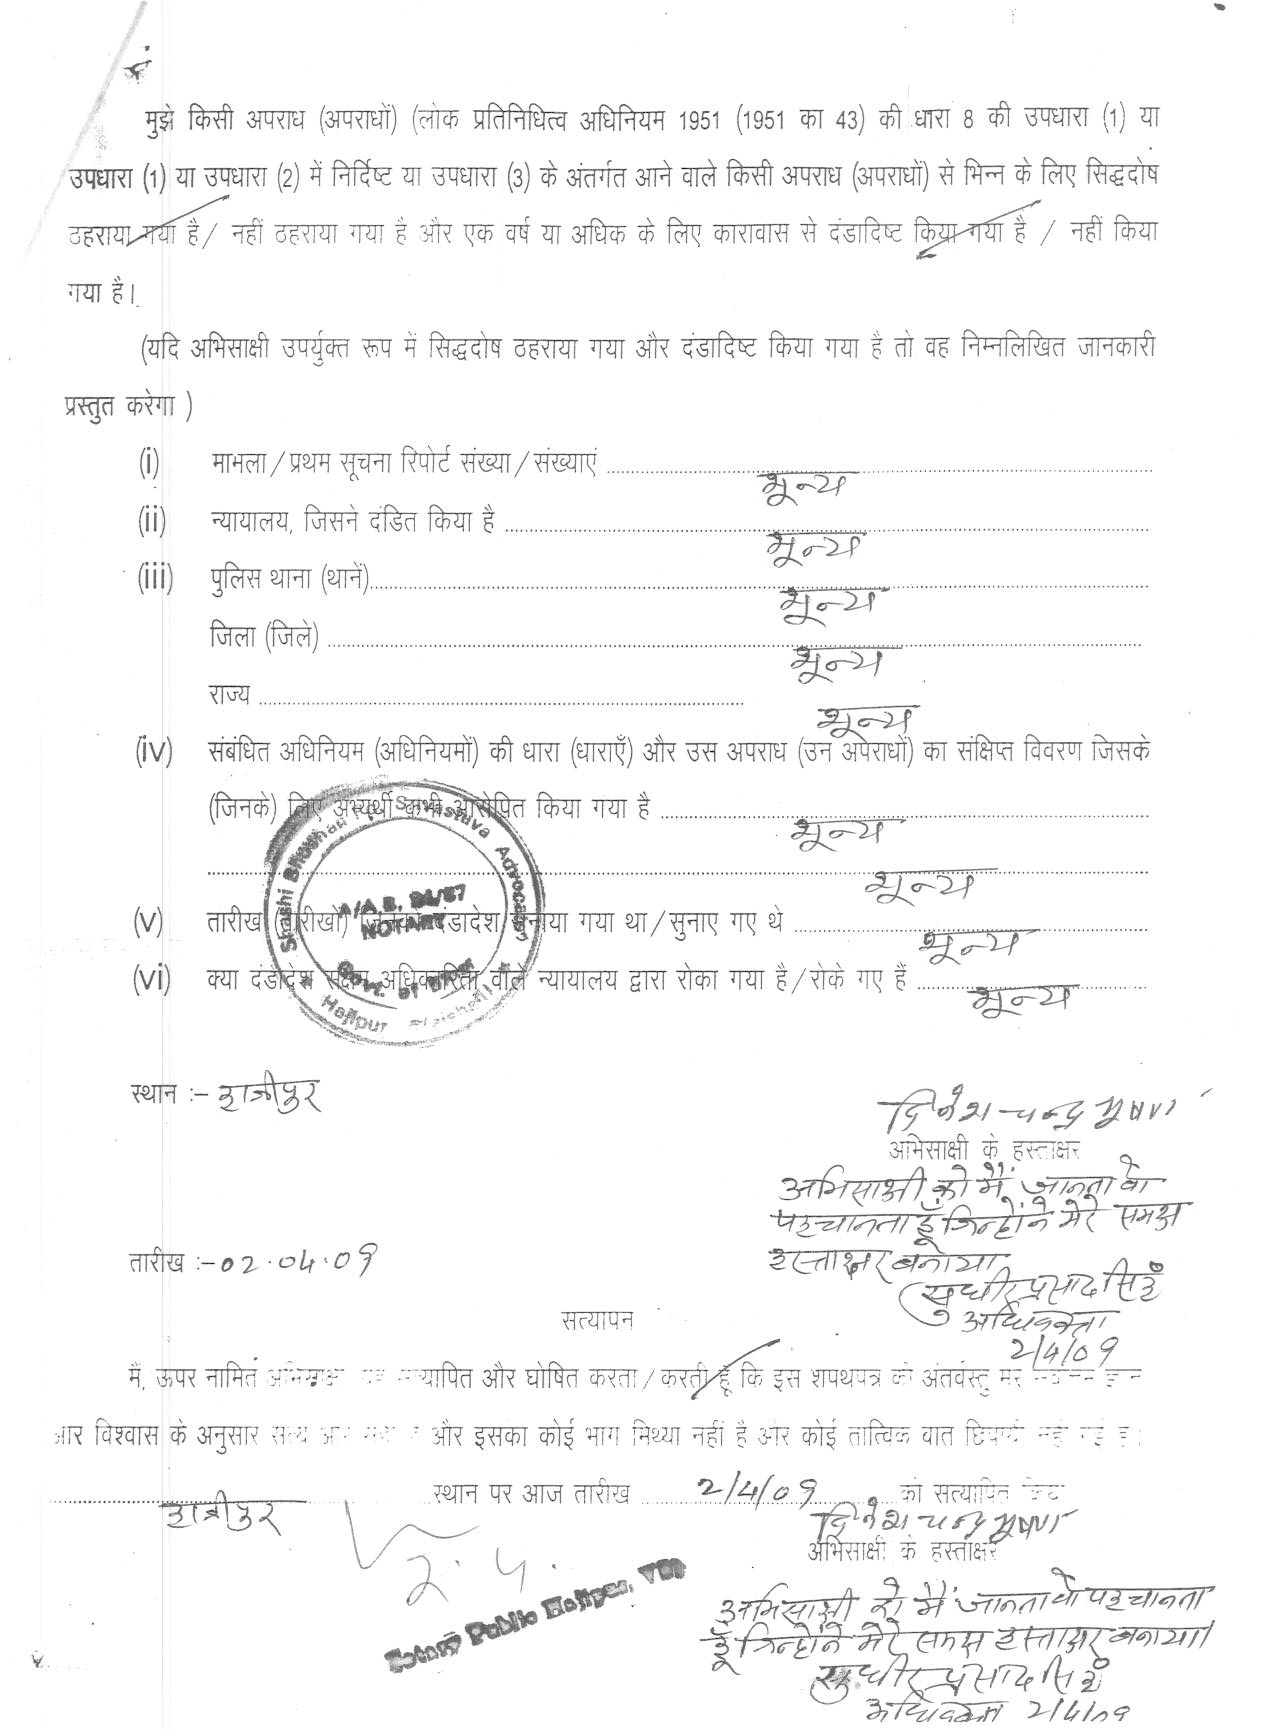 मुझे किसी अपराध (अपराधों) (लोक प्रतिनिधित्व अधिनियम 1951 (1951 का 43) की धारा 8 की उपधारा (1) या
उपधारा (1) या उपधारा (2) में निर्दिष्ट या उपधारा (3) के अंतर्गत आने वाले किसी अपराध (अपराधों) से भिन्न के लिए सिद्धदोष
ठहराया गया है/ नहीं ठहराया गया है और एक वर्ष या अधिक के लिए कारावास से दंडादिष्ट किया गया है / नहीं किया
गया है।
(यदि अभिसाक्षी उपर्युक्त रूप में सिद्धदोष ठहराया गया और दंडादिष्ट किया गया है तो वह निम्नलिखित जानकारी
प्रस्तुत करेगा )
(i) मामला/प्रथम सूचना रिपोर्ट संख्या/संख्याएं शून्य
(ii) न्यायालय, जिसने दंडित किया है शून्य
(iii) पुलिस थाना (थानें) शून्य
जिला (जिले) शून्य
राज्य शून्य
(iv) संबंधित अधिनियम (अधिनियमों) की धारा (धाराएँ) और उस अपराध (उन अपराधों) का संक्षिप्त विवरण जिसके
(जिनके) लिए अभ्यर्थी कभी आरोपित किया गया है शून्य
शून्य
(v) तारीख (तारीखों) जिनको दंडादेश सुनाया गया था/सुनाए गए थे शून्य
(vi) क्या दंडादेश सक्षम अधिकारिता वाले न्यायालय द्वारा रोका गया है/रोके गए हैं शून्य
Shashi Bhushan Srivastava Advocate
NOTARY
Govt. of Bihar
Hajipur
स्थान :- हाजीपुर
दिनेश चन्द्र भूषण
अभिसाक्षी के हस्ताक्षर
अभिसाक्षी को मैं जानता वो
पहचानता हूँ जिन्होंने मेरे समक्ष
हस्ताक्षर बनाया
तारीख :-02.04.09
सुधीर प्रसाद सिंह
अधिवक्ता
2/4/09
सत्यापन
मैं, ऊपर नामित अभिसाक्षी यह सत्यापित और घोषित करता/करती हूँ कि इस शपथपत्र की अंतर्वस्तु मेरे
और विश्वास के अनुसार सत्य और इसका कोई भाग मिथ्या नहीं है और कोई तात्विक बात छिपायी नहीं गई है।
हाजीपुर स्थान पर आज तारीख 2/4/09 को सत्यापित किया
दिनेश चन्द्र भूषण
अभिसाक्षी के हस्ताक्षर
Notary Public Hajipur,
अभिसाक्षी को मैं जानता वो पहचानता
हूँ जिन्होंने मेरे समक्ष हस्ताक्षर बनाया।
सुधीर प्रसाद सिंह
अधिवक्ता 2/4/09